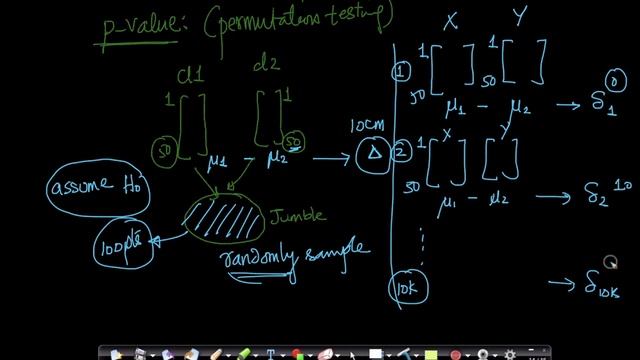 p-value: (permutation testing)
d1 d2
1 1
50 50
μ1 - μ2 → Δ
10cm
assume Ho
Jumble
100pts
randomly sample
X Y
1 1 1
50 50
μ1 - μ2 → δ1 0
2 X Y
1
50
μ1 - μ2 → δ2 10
10K → δ10K